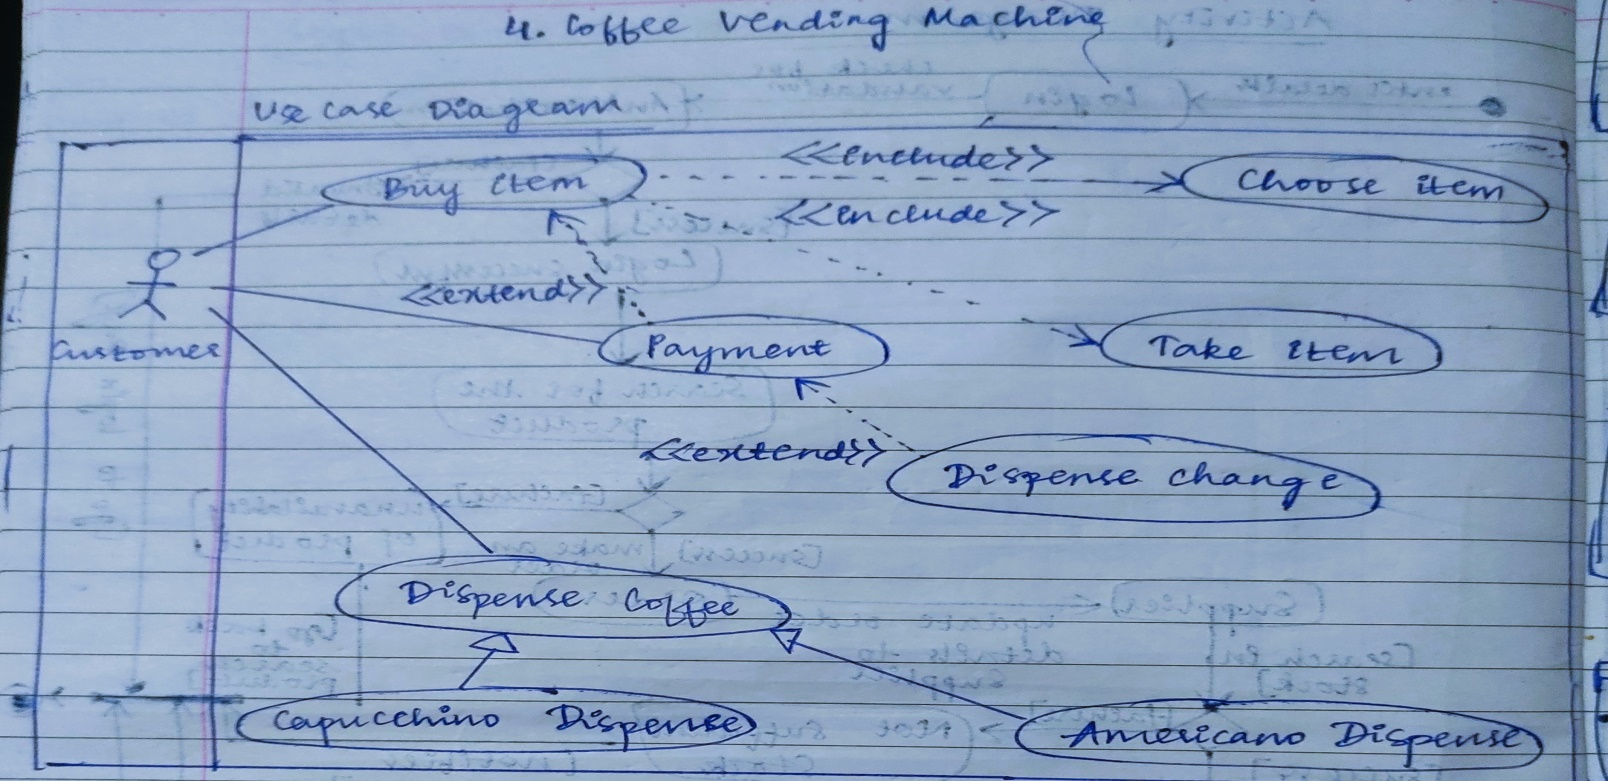 4. Coffee Vending Machine
Use case Diagram
Buy item
<<include>>
Choose item
<<include>>
<<extend>>
Customer
Payment
Take item
<<extend>>
Dispense change
Dispense Coffee
Capucchino Dispense
Americano Dispense